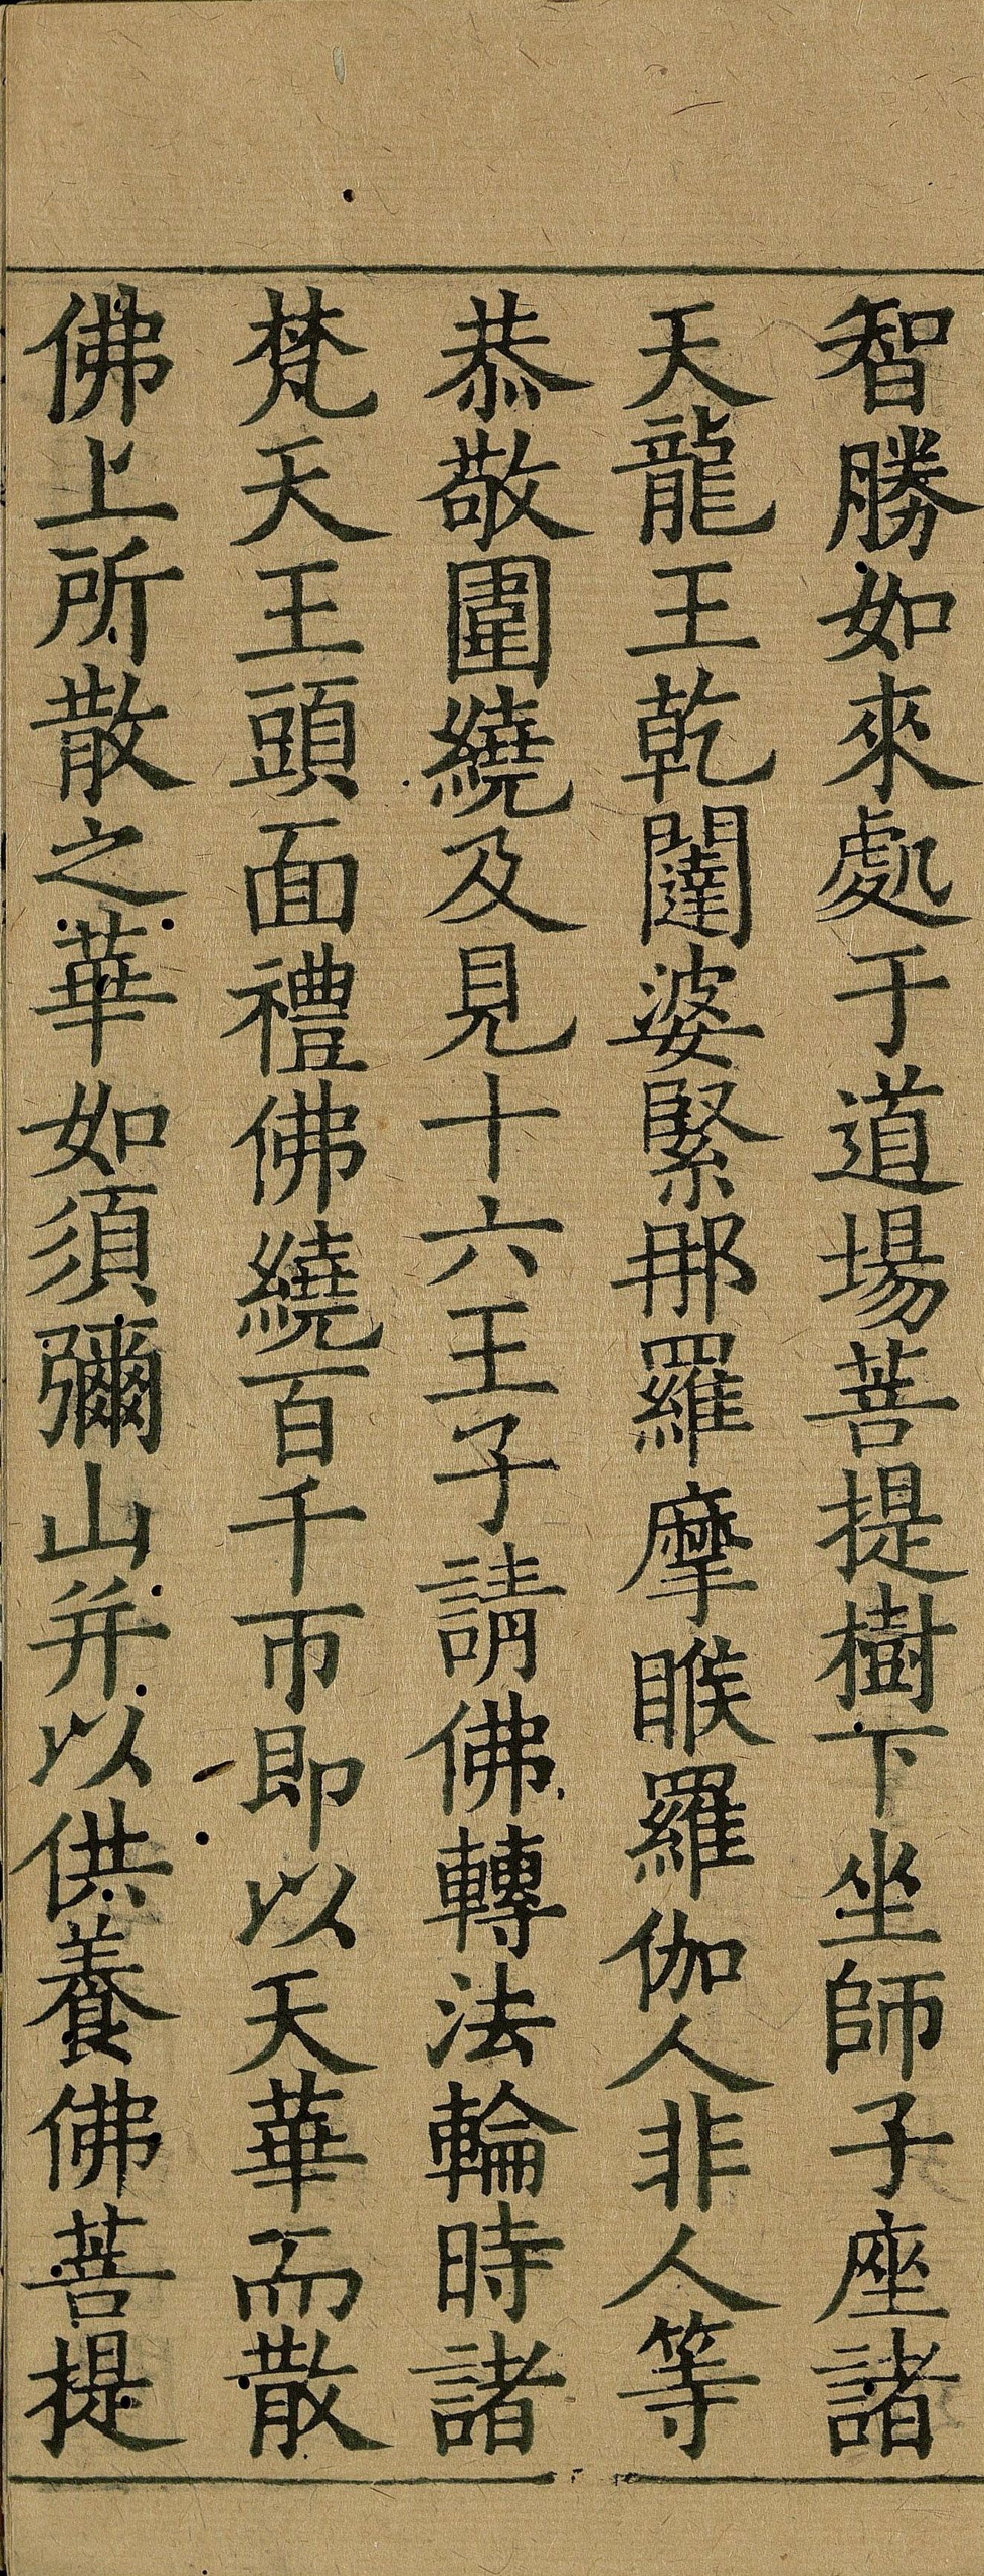 智勝如來處于道場菩提樹下坐師子座諸
天龍王乾闥婆緊那羅摩睺羅伽人非人等
恭敬圍繞及見十六王子請佛轉法輪時諸
梵天王頭面禮佛繞百千帀即以天華而散
佛上所散之華如須彌山并以供養佛菩提